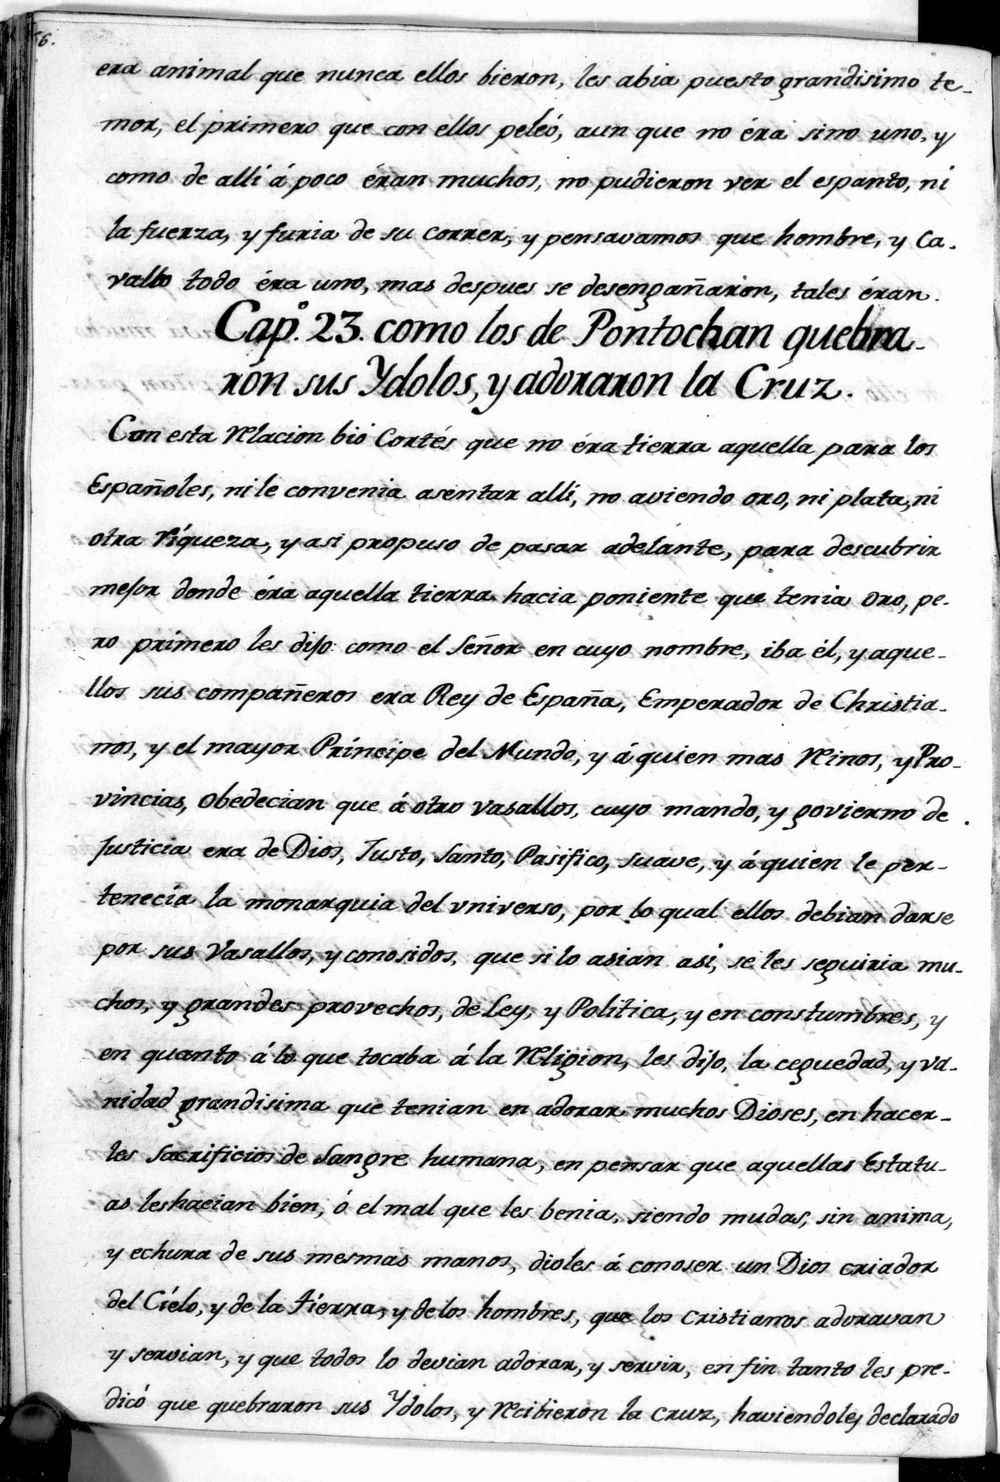 56.
era animal que nunca ellos bieron, les abia puesto grandisimo te-
mor, el primero que con ellos peleó, aun que no éra sino uno, y
como de alli á poco éran muchos, no pudieron ver el espanto, ni
la fuerza, y furia de su correr, y pensavamos que hombre, y Ca-
vallo todo éra uno, mas despues se desengañaron, tales éran.
Cap.º 23. como los de Pontochan quebra-
rón sus Ydolos, y adoraron la Cruz.
Con esta Relacion bió Cortés que no éra tierra aquella para los
Españoles, ni le convenia asentar alli, no aviendo oro, ni plata, ni
otra riqueza, y asi propuso de pasar adelante, para descubrir
mejor donde éra aquella tierra hacia poniente que tenia oro, pe-
ro primero les dijo: como el Señor en cuyo nombre, iba él, y aque-
llos sus compañeros era Rey de España, Emperador de Christia-
nos, y el mayor Príncipe del Mundo, y á quien mas Reinos, y Pro-
vincias, obedecian que á otro vasallos, cuyo mando, y govierno de
Justicia era de Dios, Justo, Santo, Pasifico, suave, y á quien le per-
tenecía la monarquia del vniverso, por lo qual ellos debian darse
por sus Vasallos, y conosidos, que si lo asian asi, se les seguiria mu-
chos, y grandes provechos, de Ley, y Politica, y en constumbres, y
en quanto á lo que tocaba á la Religion, les dijo, la ceguedad, y va-
nidad grandisima que tenian en adorar muchos Dioses, en hacer-
les sacrificios de Sangre humana, en pensar que aquellas Estatu-
as les hacian bien, ó el mal que les benia, siendo mudas, sin anima,
y echura de sus mesmas manos, dioles á conoser un Dios criador
del Cielo, y de la tierra, y de los hombres, que los cristianos adoravan
y servian, y que todos lo devian adorar, y servir, en fin tanto les pre-
dicó que quebraron sus Ydolos, y recibieron la cruz, haviendoles declarado